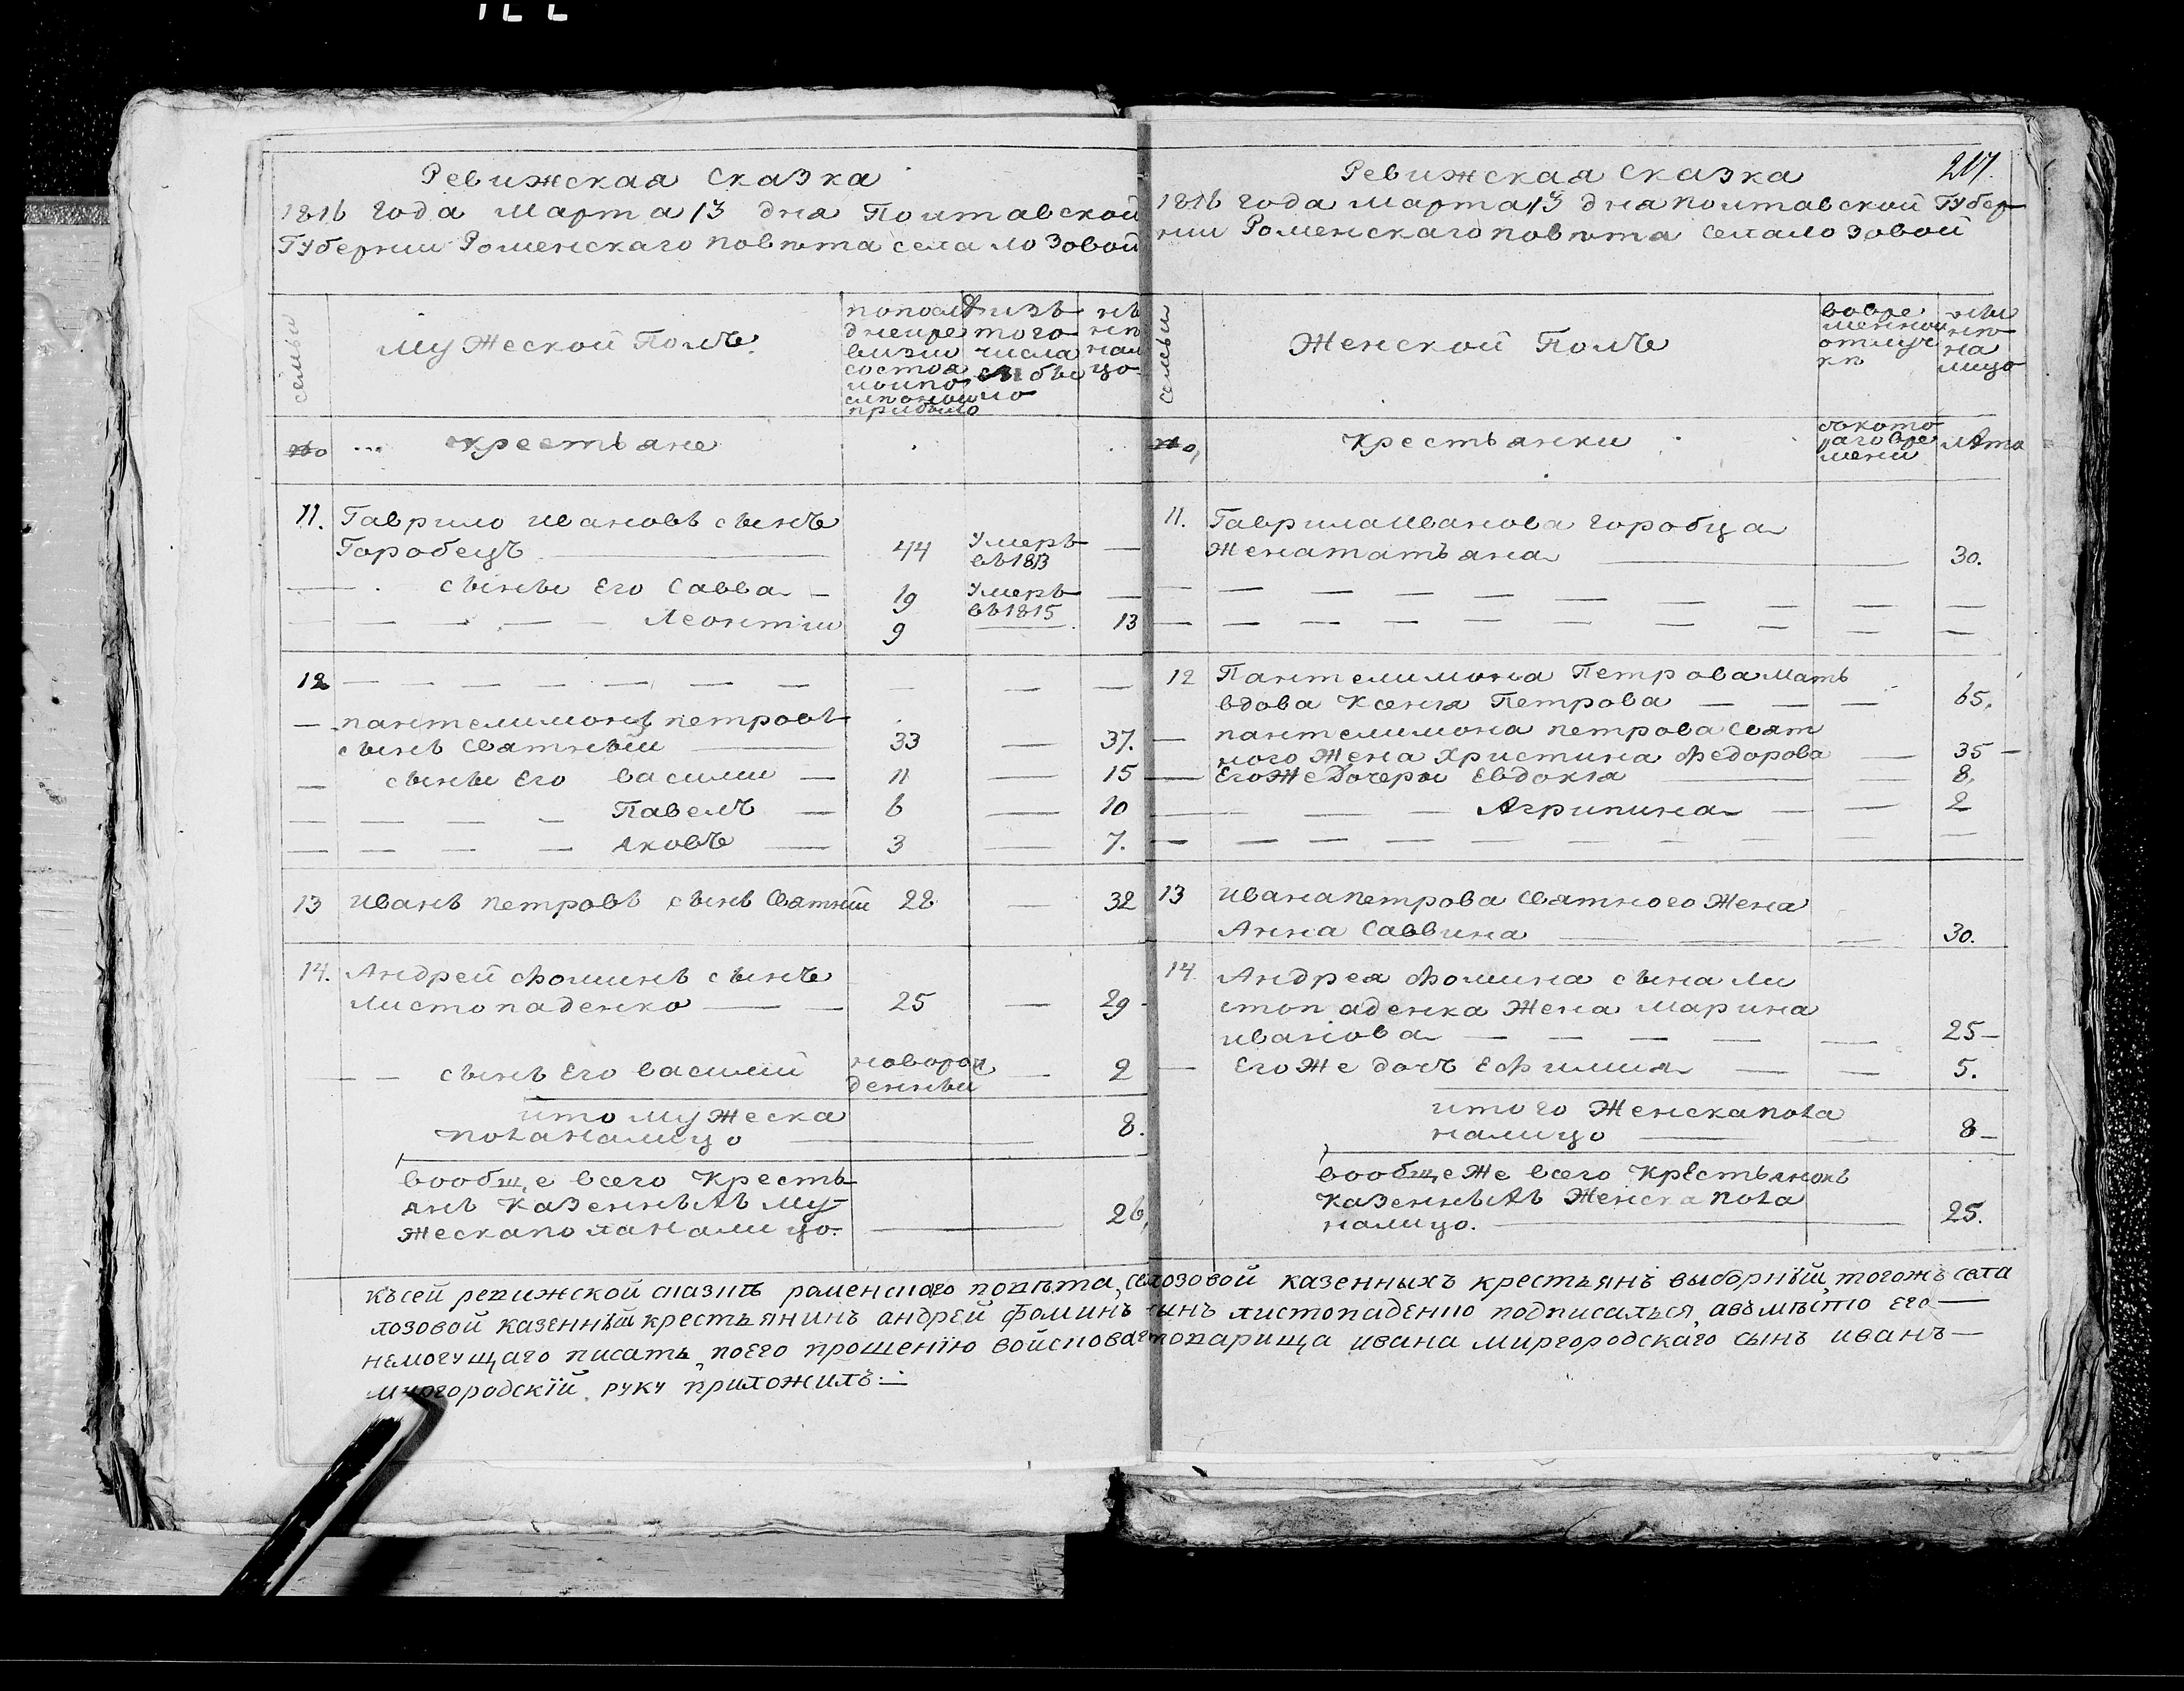 Ревижская Сказка
1816 года марта 13 дня Полтавской
Губернии Роменскаго повѣта села лозовой
семьи
Мужеской Полъ
по послѣ
дней ре
визии
состоя
ло и по
слѣ оной
прибыло
изъ
того
числа
выбы
ло
нынѣ
на ли
цо
№
крестьяне
11. Гаврило Ивановъ сынъ
Горобецъ 44 Умеръ въ 1813 —
сыны Его Савва 19 Умеръ въ 1815 —
Леонтии 9 — 13
12 — — — — — — — —
пантелимонъ петровъ
сынъ Святный 33 — 37.
сыны Его василии — 11 — 15
Павелъ — 6 — 10
яковъ — 3 — 7.
13 Иванъ петровъ сынъ Святный 28 — 32
14. Андрей фоминъ сынъ
листопаденко — 25 — 29
сынъ Его василий новорожденный — 2
итого мужеска
пола налицо — 8.
вообще всего Кресть
янъ Казенныхъ му
жеска пола налицо — 26.
Ревижская Сказка
217.
1816 года марта 13 дня полтавской Губер
нии Роменскаго повѣта села лозовой
семьи
Женской Полъ
во вре
менной
отлуч
кѣ
нынѣ
на
лицо
№
Крестьянки
съ кото
раго вре
мени
лѣта
11. Гаврила Иванова горобца
Жена татьяна — 30.
— — — — — — — — —
— — — — — — — — —
12 Пантелимона Петрова мать
вдова Ксения Петрова — — — 65.
пантелимона петрова свят
ного Жена Христина федорова — 35 —
Его же Дочери Евдокия — 8.
Агрипина — — 2
— — — — — — — — —
13 Ивана петрова Святного Жена
Анна Саввина — 30.
14 Андрея фомина сына ли
стопаденка Жена марина
иванова — — — — 25 —
Его же дочъ Ефимия — — 5.
итого Женска пола
налицо — 8 —
вообще же всего крестьянокъ
казенныхъ Женска пола
налицо. — 25.
Къ сей ревижской сказкѣ роменского повѣта, села лозовой казенныхъ крестьянъ выборный тогожъ села
лозовой казенный крестьянинъ андрей фоминъ сынъ листопаденко подписался, а вмѣсто его —
немогущаго писать, по его прошенїю войскового товарища ивана миргородскаго сынъ иванъ —
миргородскїй руку приложилъ: —